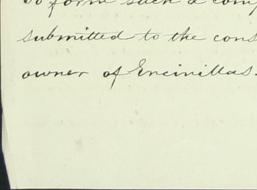 to form such a comp
submitted to the cons
owner of Encinillas.